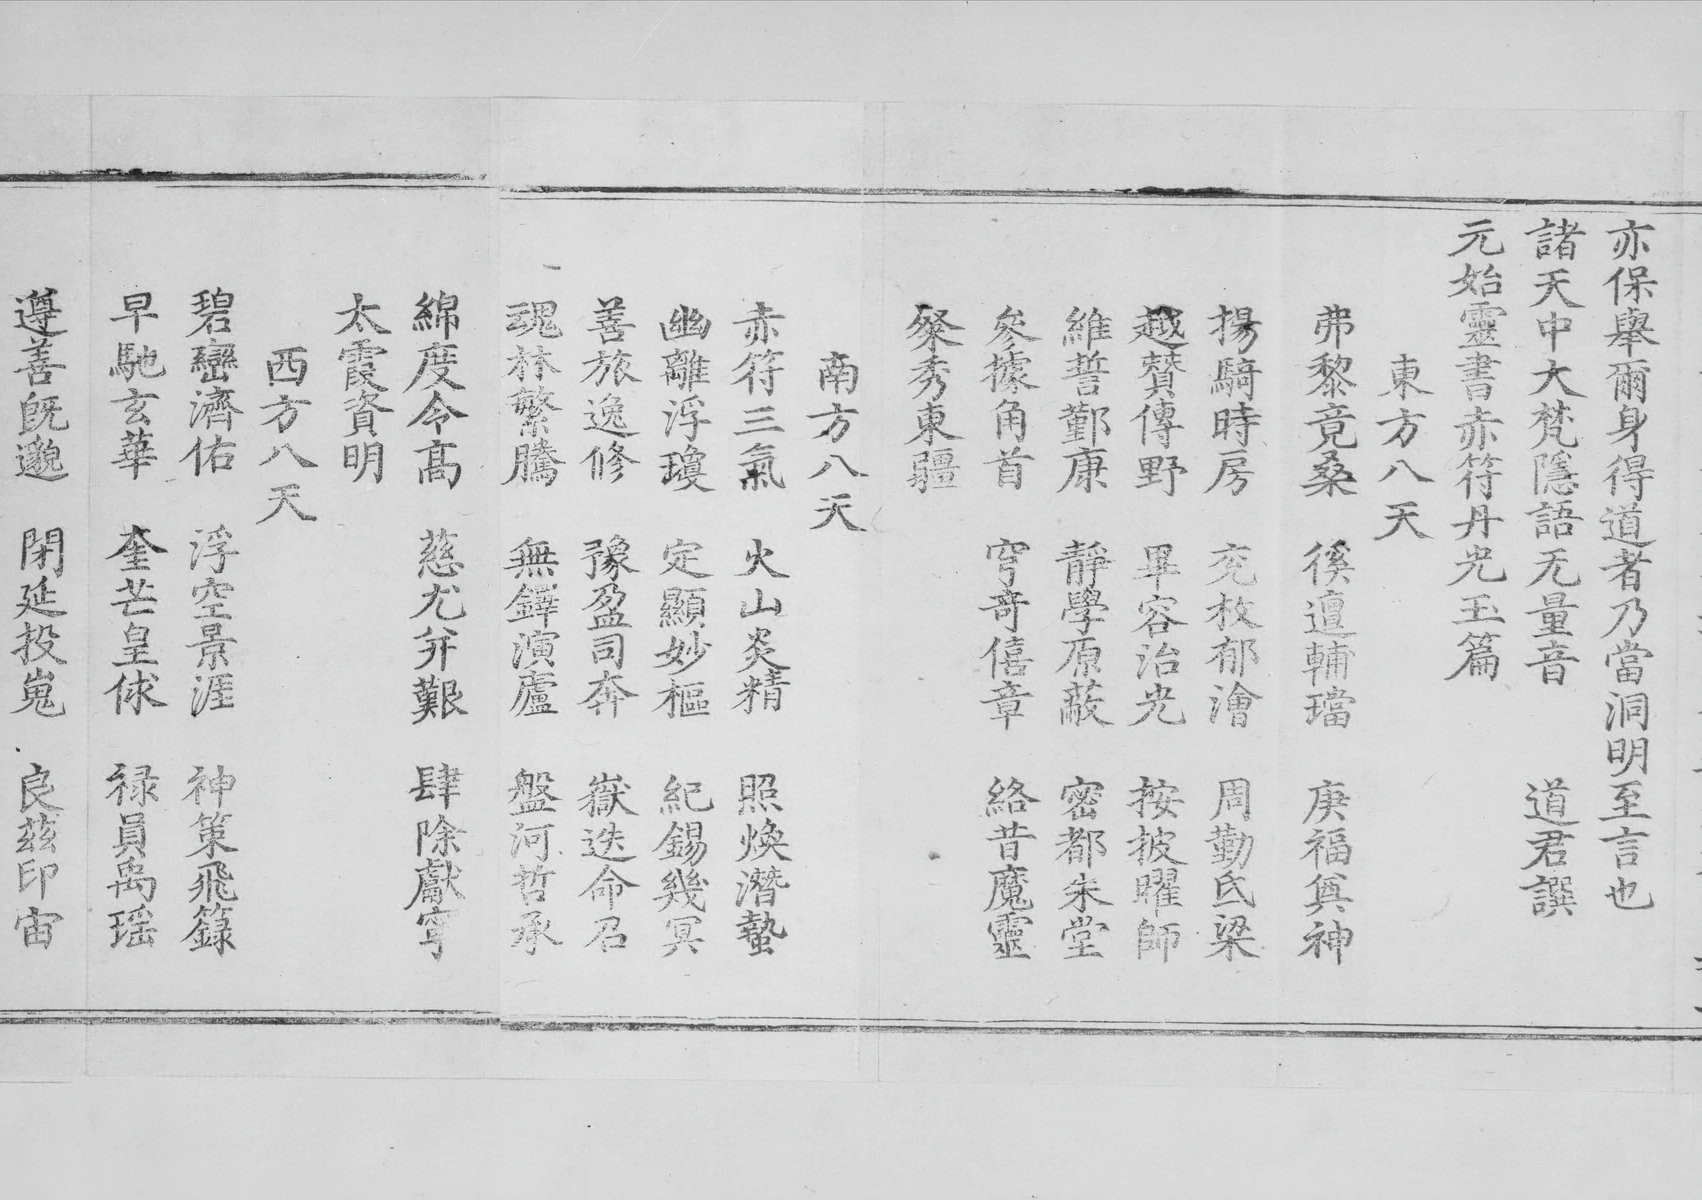 亦保舉爾身得道者乃當洞明至言也
諸天中大梵隱語无量音 道君譔
元始靈書赤符丹光玉篇
東方八天
弗黎竟桑 徯邅輔璫 庚福奠神
揚騎時房 充枚郁澮 周勤氐梁
越贊傳野 畢容治光 按披曜師
維誓鄞康 靜學原蔽 密都朱堂
參據角首 穹奇僖章 絡昔魔靈
粲秀東疆
南方八天
赤符三氣 火山炎精 照煥潛蟄
幽離浮瓊 定顯妙樞 紀錫幾冥
善旅逸修 豫盈司奔 嶽迭命召
魂林繁騰 無鐸演廬 盤河哲承
綿度令高 慈尤弁艱 肆除獻寧
太霞資明
西方八天
碧巒濟佑 浮空景涯 神策飛籙
早馳玄華 奎芒皇俅 禄員禹瑶
遵善既邈 閉延投嵬 良茲印宙